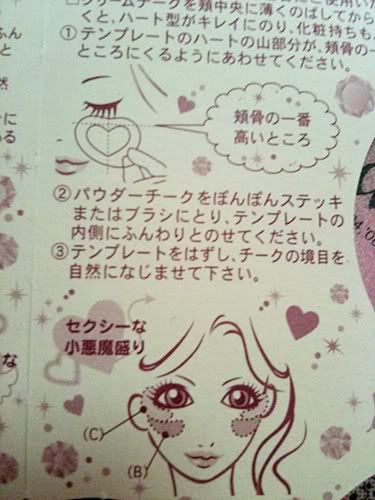 □クリームチークを頬中央に薄くのばしてから
くと、ハート型がキレイにのり、化粧持ちも
①テンプレートのハートの山部分が、頬骨の一
ところにくるようにあわせてください。
頬骨の一番
高いところ
②パウダーチークをぽんぽんステッキ
またはブラシにとり、テンプレートの
内側にふんわりとのせてください。
③テンプレートをはずし、チークの境目を
自然になじませて下さい。
セクシーな
小悪魔盛り
(C)
(B)